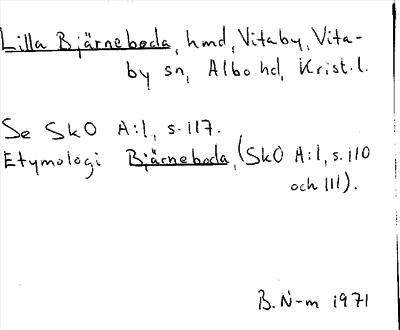 Lilla Bjärneboda, hmd, Vitaby, Vita-
by sn, Albo hd, Krist. l.
Se SkO A:1, s. 117.
Etymologi Bjärneboda, (SkO A:1, s. 110
och 111).
B. N-m 1971